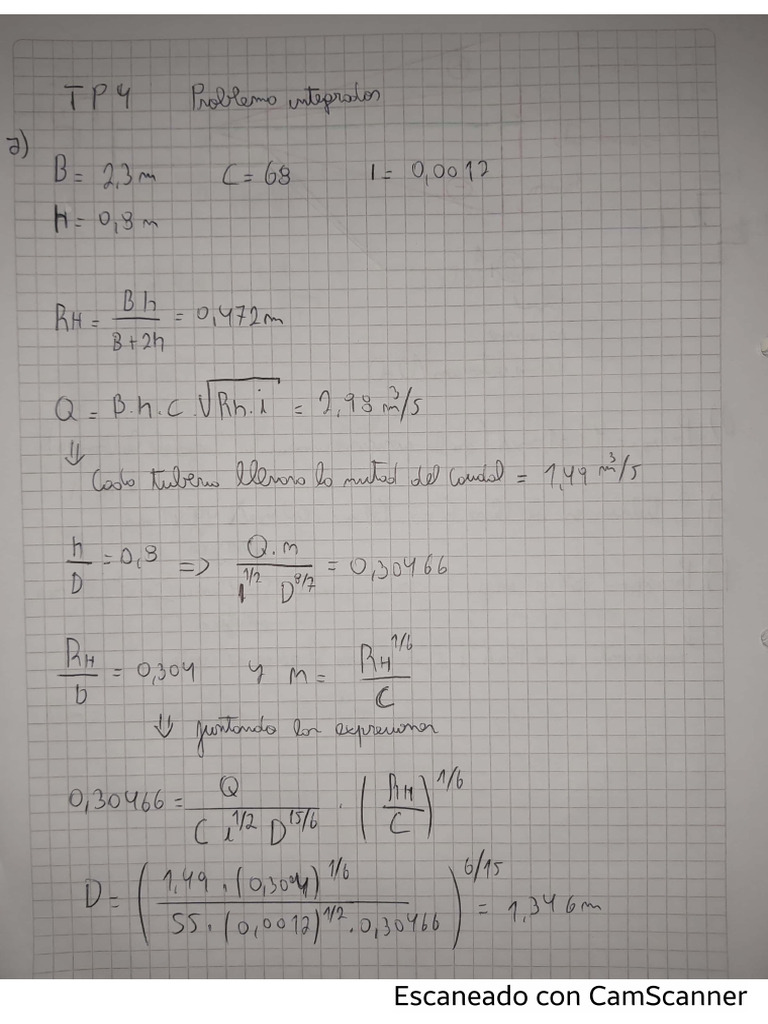 TP4 Problema integrador
a)
B = 2,3 m C = 68 i = 0,0012
H = 0,8 m
RH = Bh / B+2h = 0,472 m
Q = B.h.C.√Rh.i = 2,98 m³/s
⇓
Cada tuberia llevara la mitad del caudal = 1,49 m³/s
h/D = 0,8 => Q.n / i^1/2 D^8/7 = 0,30466
RH/D = 0,304 y n = RH^1/6 / C
⇓ juntando las expresiones
0,30466 = Q / C i^1/2 D^15/6 . (RH/C)^1/6
D = (1,49 . (0,304)^1/6 / 55 . (0,0012)^1/2 . 0,30466)^6/15 = 1,346 m
Escaneado con CamScanner